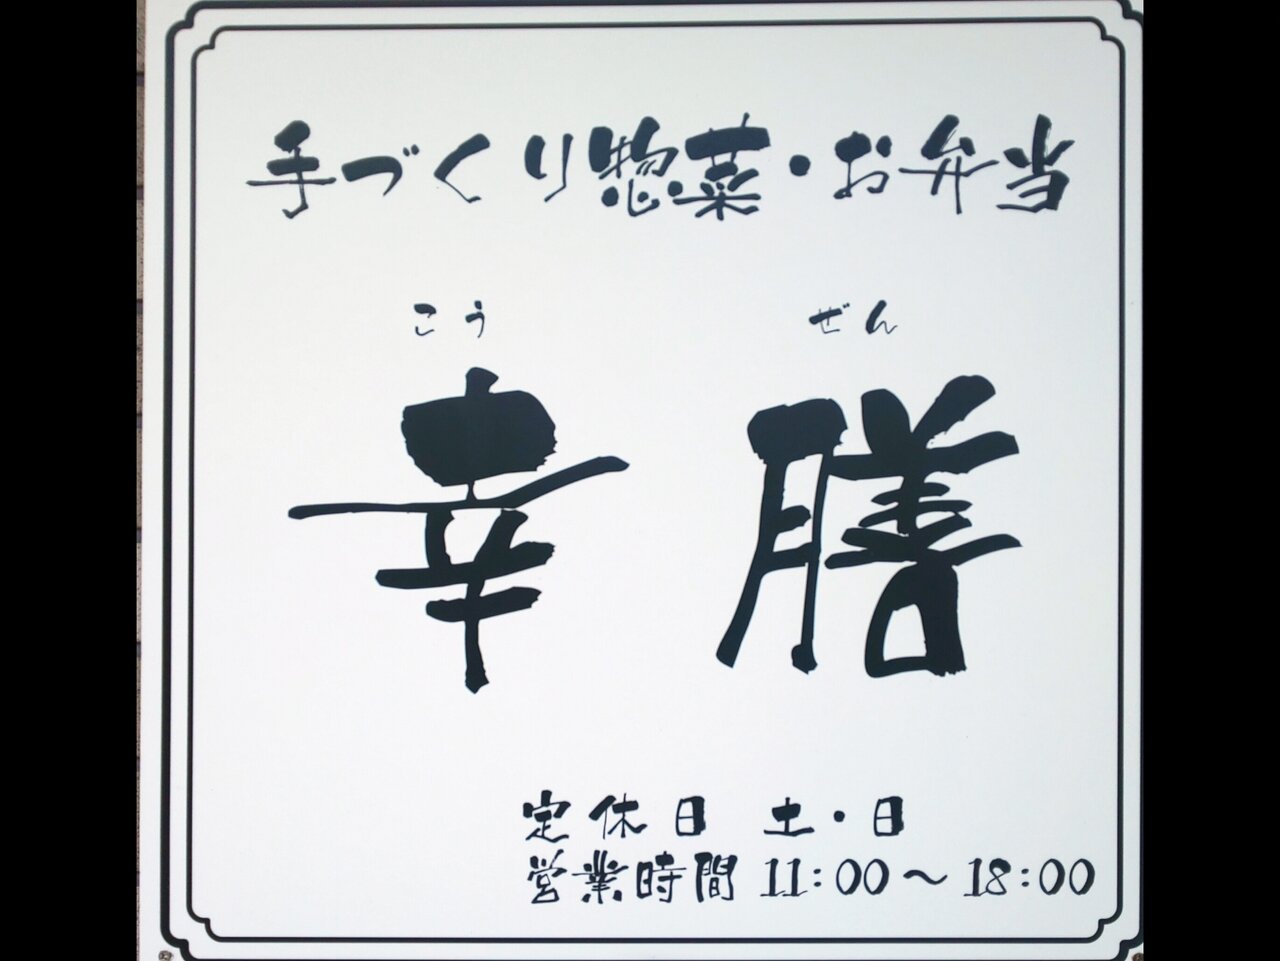 手づくり惣菜・お弁当
こう ぜん
幸膳
定休日 土・日
営業時間 11:00～18:00